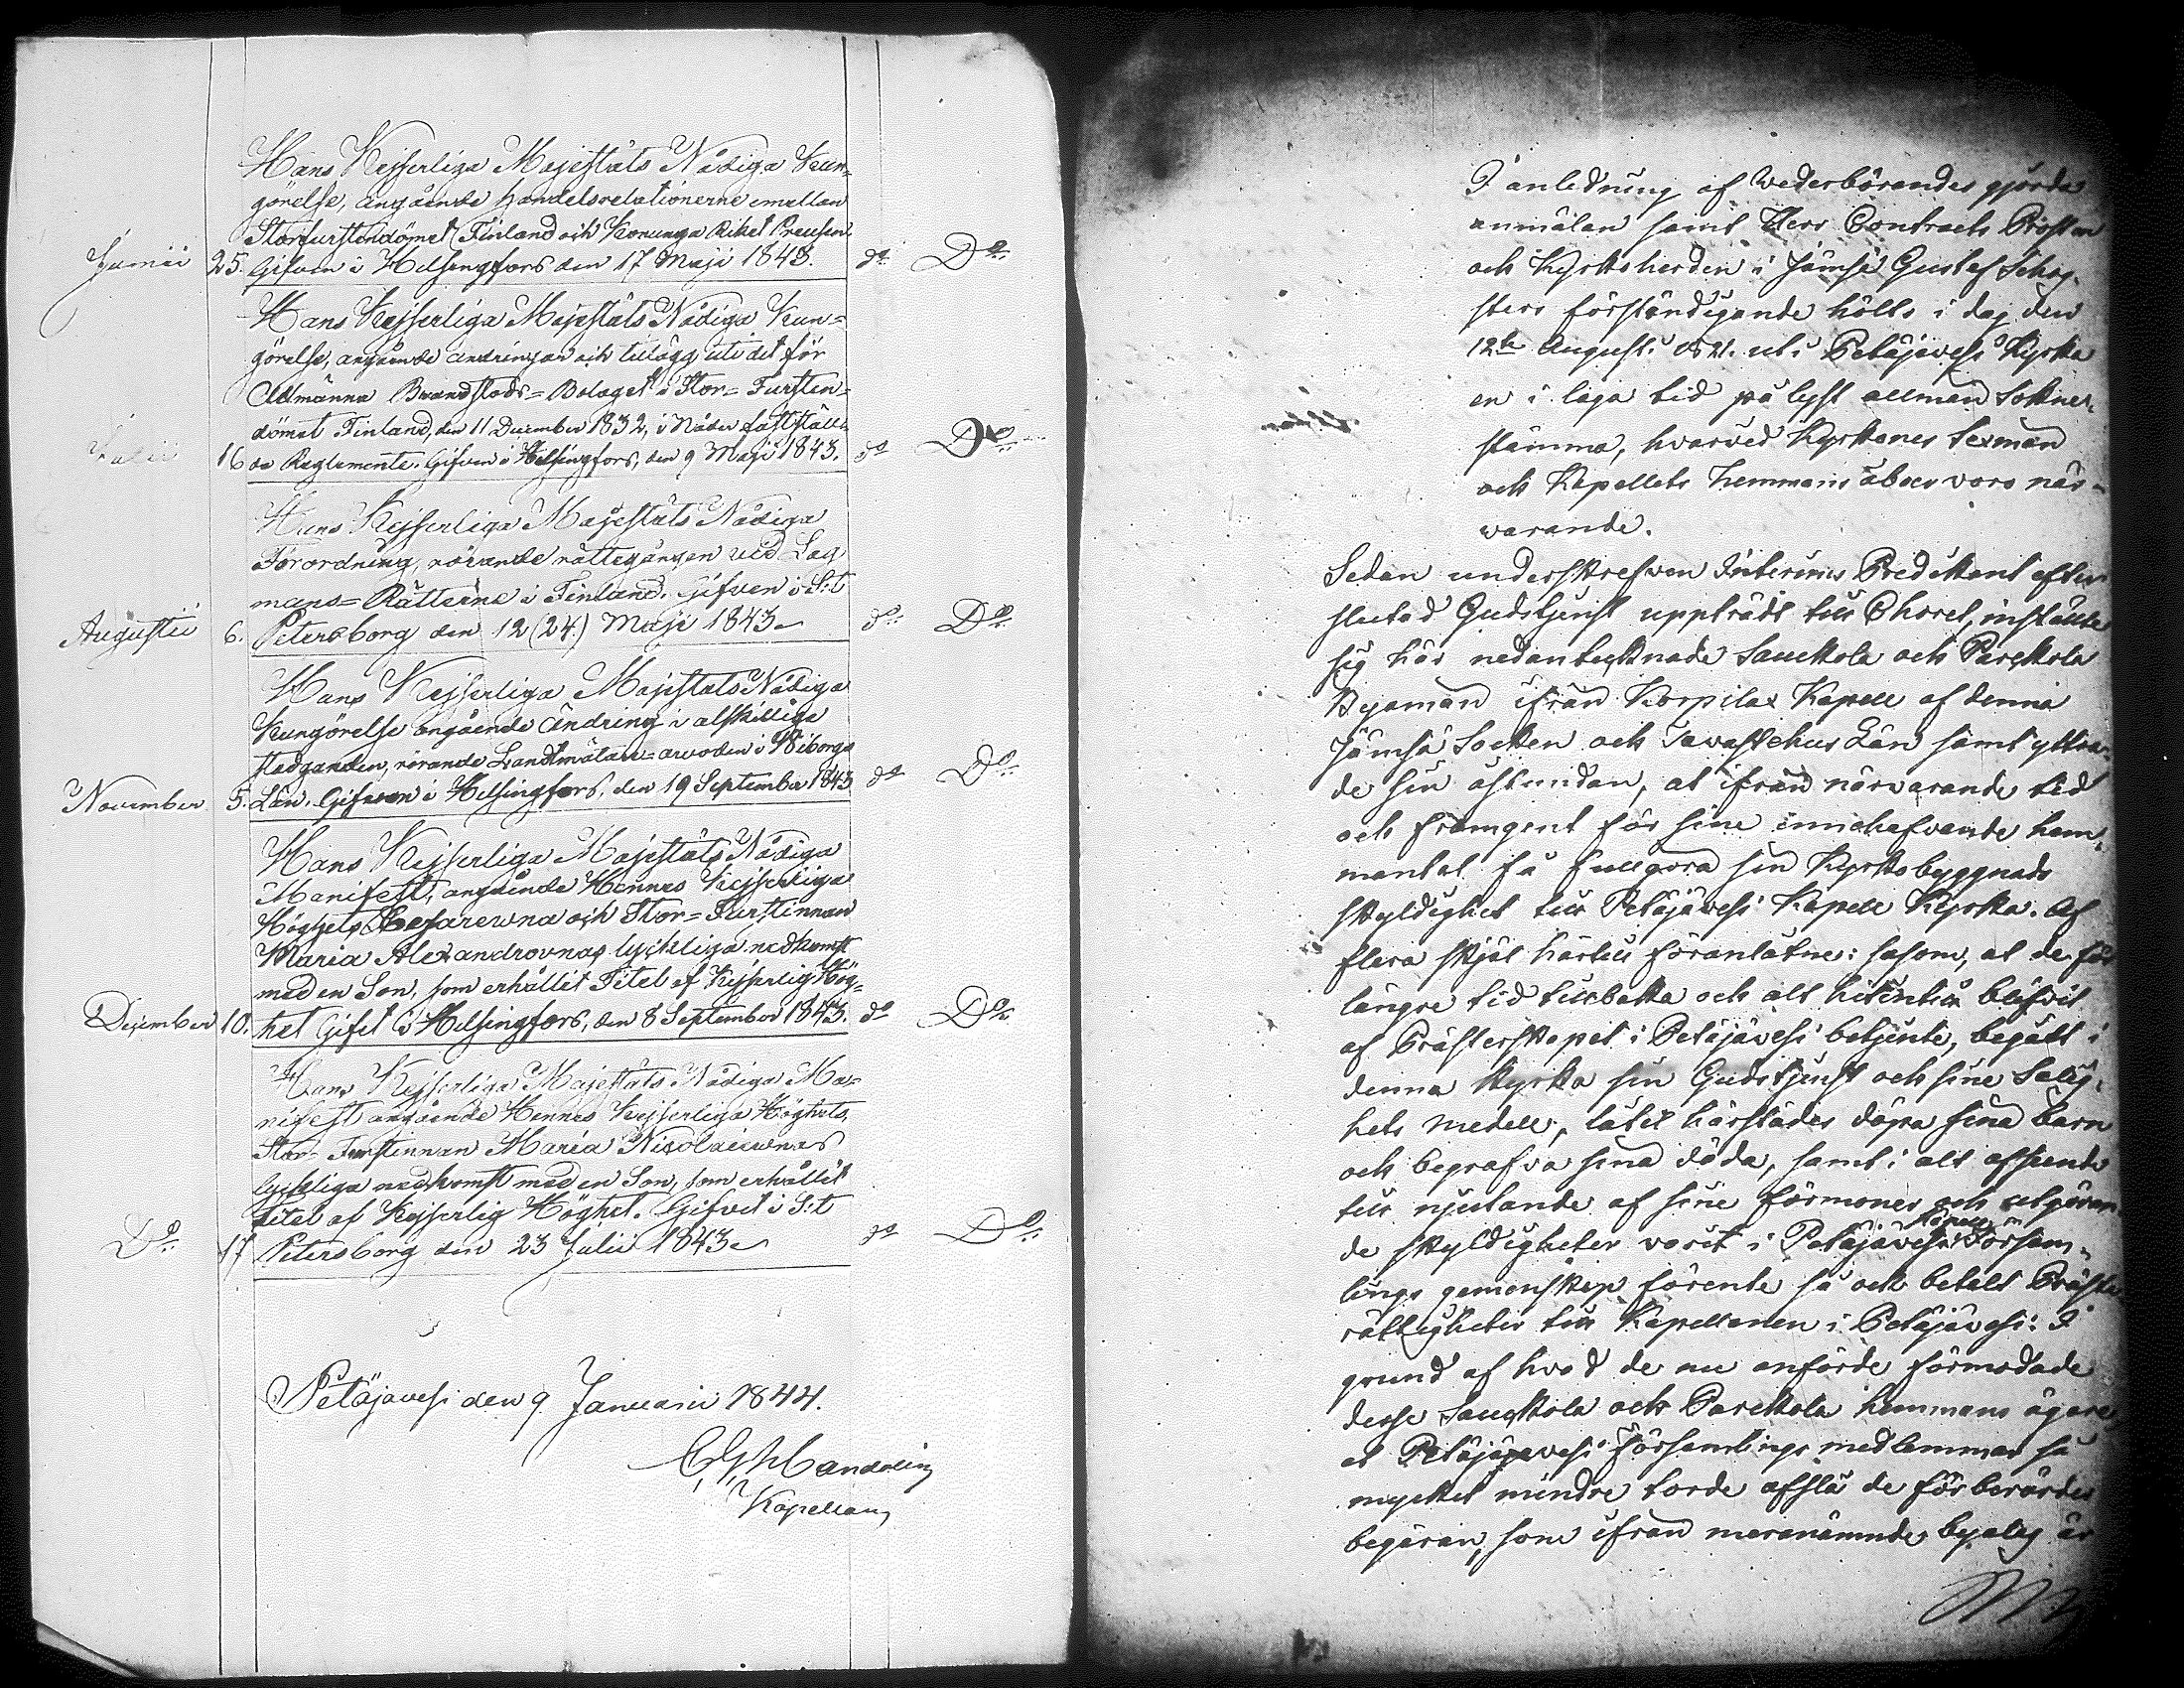 Hans Kejserliga Majestäts Nådiga Kun-
görelse, angående handelsrelationerne emellan
Storfurstendömet Finland och Konunga Riket Preusen.
Junii 25. Gifven i Helsingfors den 17 Maji 1843. do Do
Hans Kejserliga Majestäts Nådiga Kun=
görelse, angående ändringar och tillägg uti det för
Allmänna Brandstods=Bolaget i Stor=Fursten=
dömet Finland, den 11 December 1832, i Nåder fastställ-
Julii 16 da Reglemente. Gifven i Helsingfors, den 9 Maji 1843. do Do
Hans Kejserliga Majestäts Nådiga
Förordning, rörande rättegången vid Lag
mans=Rätterne i Finland. Gifven i S:t
Augustii 6. Petersborg den 12 (24.) Maji 1843 do Do
Hans Kejserliga Majestäts Nådiga
Kungörelse angående Ändring i alskillige
stadganden, rörande Landtmätare=arvoden i Wiborgs
November 5. Län. Gifven i Helsingfors, den 19 September 1843 do Do
Hans Kejserliga Majestäts Nådiga
Manifest, angående Hennes Kejserliga
Höghets Cesarewna och Stor=Furstinnan
Maria Alexandrovnas lyckliga nedkomst
med en Son, som erhållit Titel af Kejserlig Hög=
December 10. het Gifvet i Helsingfors, den 8 September 1843. do Do
Hans Kejserliga Majestäts Nådiga Ma=
nifest angående Hennes Kejserliga Höghets,
Stor-Furstinnan Maria Nikolaiewnas
lyckliga nedkomst med en Son, som erhållit
titel af Kejserlig Höghet. Gifvet i S:t
Do 17 Petersborg den 23 Julii 1843 do Do
Petäjävesi den 9 Januarii 1844.
Mandelin
Kapellan
I anledning af Wederbörandes gjorda
anmälan samt Herr Contracts Prosten
och Kyrkoherden i Jämsä Gustaf
sters förständigande hölls i dag den
12te Augusti 1821. uti Petäjävesi Kyrka
en i laga tid pålyst allmän Sockne-
stämma, hvarvid Kyrkones Sexmän
och Kapellets Hemmans åboer voro när-
warande.
Sedan underskrefven Interims Predikant efter
slutad Gudstjenst uppträdt till Choret, instälte
sig här nedantecknade Sauckola och Parckola
Byamän ifrån Korpilax Kapell af denna
Jämsä Socken och Tavastehus Län samt yttra-
de sin åstundan, at ifrån närvarande tid
och framgent för sine innehafvande hem-
mantal få fullgöra sin Kyrkobyggnads
skyldighet till Petäjävesi Kapell Kyrka. Af
flera skjäl härtill föranlåtne: såsom, at de för
längre tid tillbaka och alt hitintill blifvit
af Prästerskapet i Petäjävesi betjente, begått i
denna Kyrka sin Gudstjenst och sine Salig-
hets Medell, låtit härstädes döpa sina barn
och begrafva sina döda, samt i alt afseende
till njutande af sine förmoner och utgöran
de skyldigheter varit i Petäjävesi Kapell Försam-
lings gemenskap förente så och betalt Präste
rättigheter till Kapellanen i Petäjävesi: I
grund af hvad de nu anförde förmodade
desse Sauckola och Parckola hemmans ägare
at Petäjävesi Församlings medlemmar så
mycket mindre torde afslå de förberörde
begäran, som ifrån meranämnde byalag är